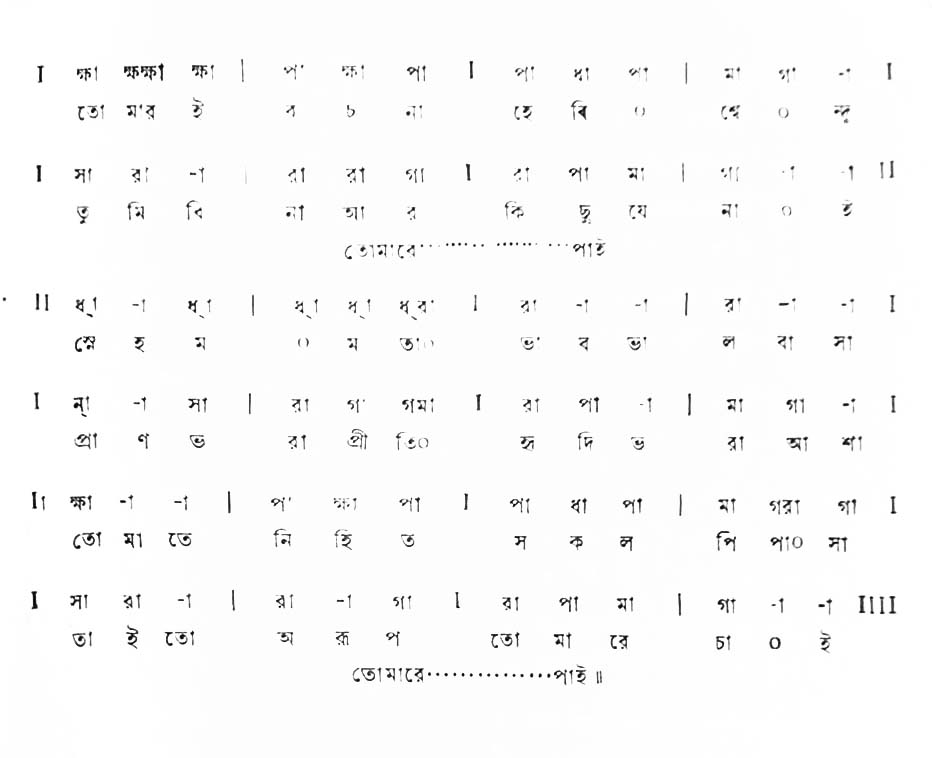 I ক্ষা ক্ষক্ষা ক্ষা | পা ক্ষা পা I পা ধা পা | মা গা -া I
তো মা'র ই র চ না হে রি ০ শ্বে ০ ন্দু
I সা রা -া | রা রা গা I রা পা মা | গা -া -া II
তু মি বি না আ র কি ছু যে না ০ ই
তোমারে··················পাই
II ধ্া -া ধ্া | ধ্া ধ্া ধ্রা I রা -া -া | রা -া -া I
স্নে হ ম ০ ম তা০ ভা ব ভা ল বা সা
I ন্া -া সা | রা গা গমা I রা পা -া | মা গা -া I
প্রা ণ ভ রা প্রী তি০ হৃ দি ভ রা আ শা
I ক্ষা -া -া | পা ক্ষা পা I পা ধা পা | মা গরা গা I
তো মা তে নি হি ত স ক ল পি পা০ সা
I সা রা -া | রা -া গা I রা পা মা | গা -া -া IIII
তা ই তো অ রূ প তো মা রে চা ০ ই
তোমারে···············পাই ॥